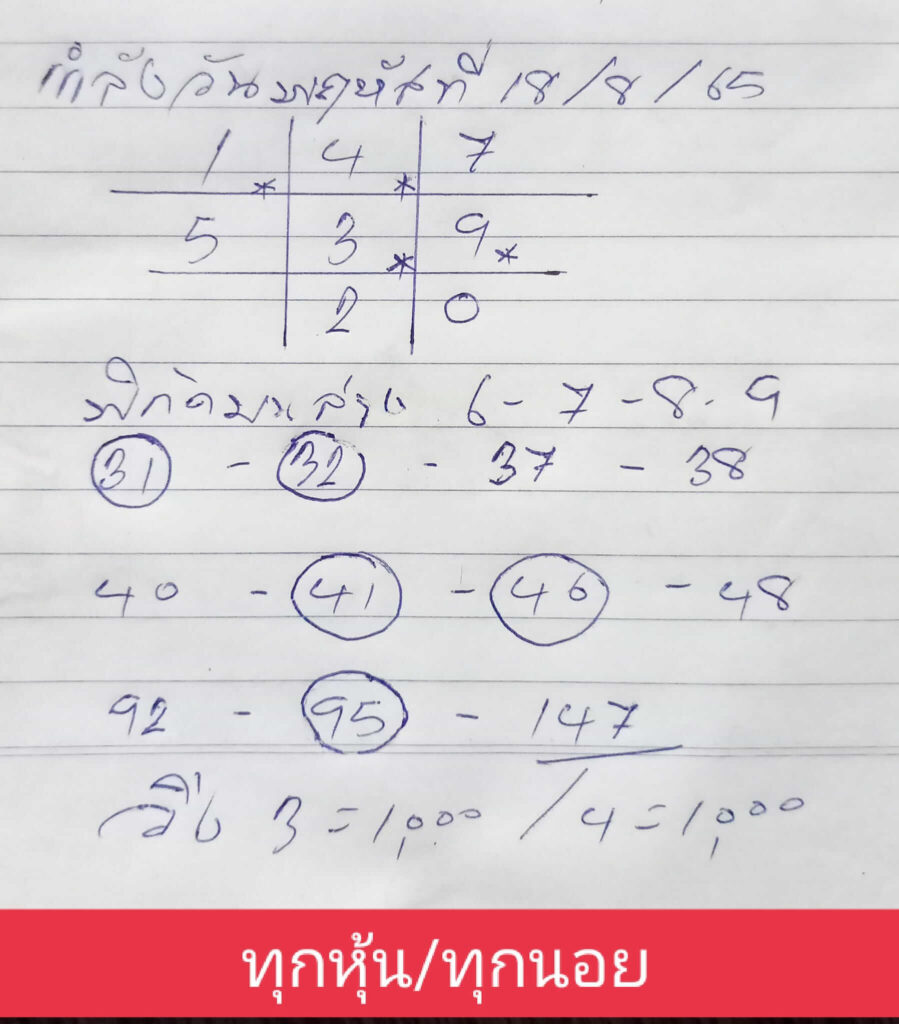 กำลังวันพฤหัสที่ 18/8/65
1 * 4 * 7
5 3 * 9 *
2 0
พิกัดบน ล่าง 6 - 7 - 8 . 9
31 - 32 - 37 - 38
40 - 41 - 46 - 48
92 - 95 - 147
วิ่ง 3 = 1,000 / 4 = 1,000
ทุกหุ้น/ทุกนอย